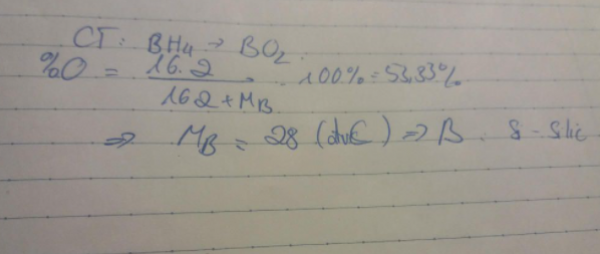 CT: BH4 → BO2.
%O = 16.2 / 16.2 + MB . 100% = 53,33%
⇒ MB = 28 (đvC) ⇒ B : S - Slic